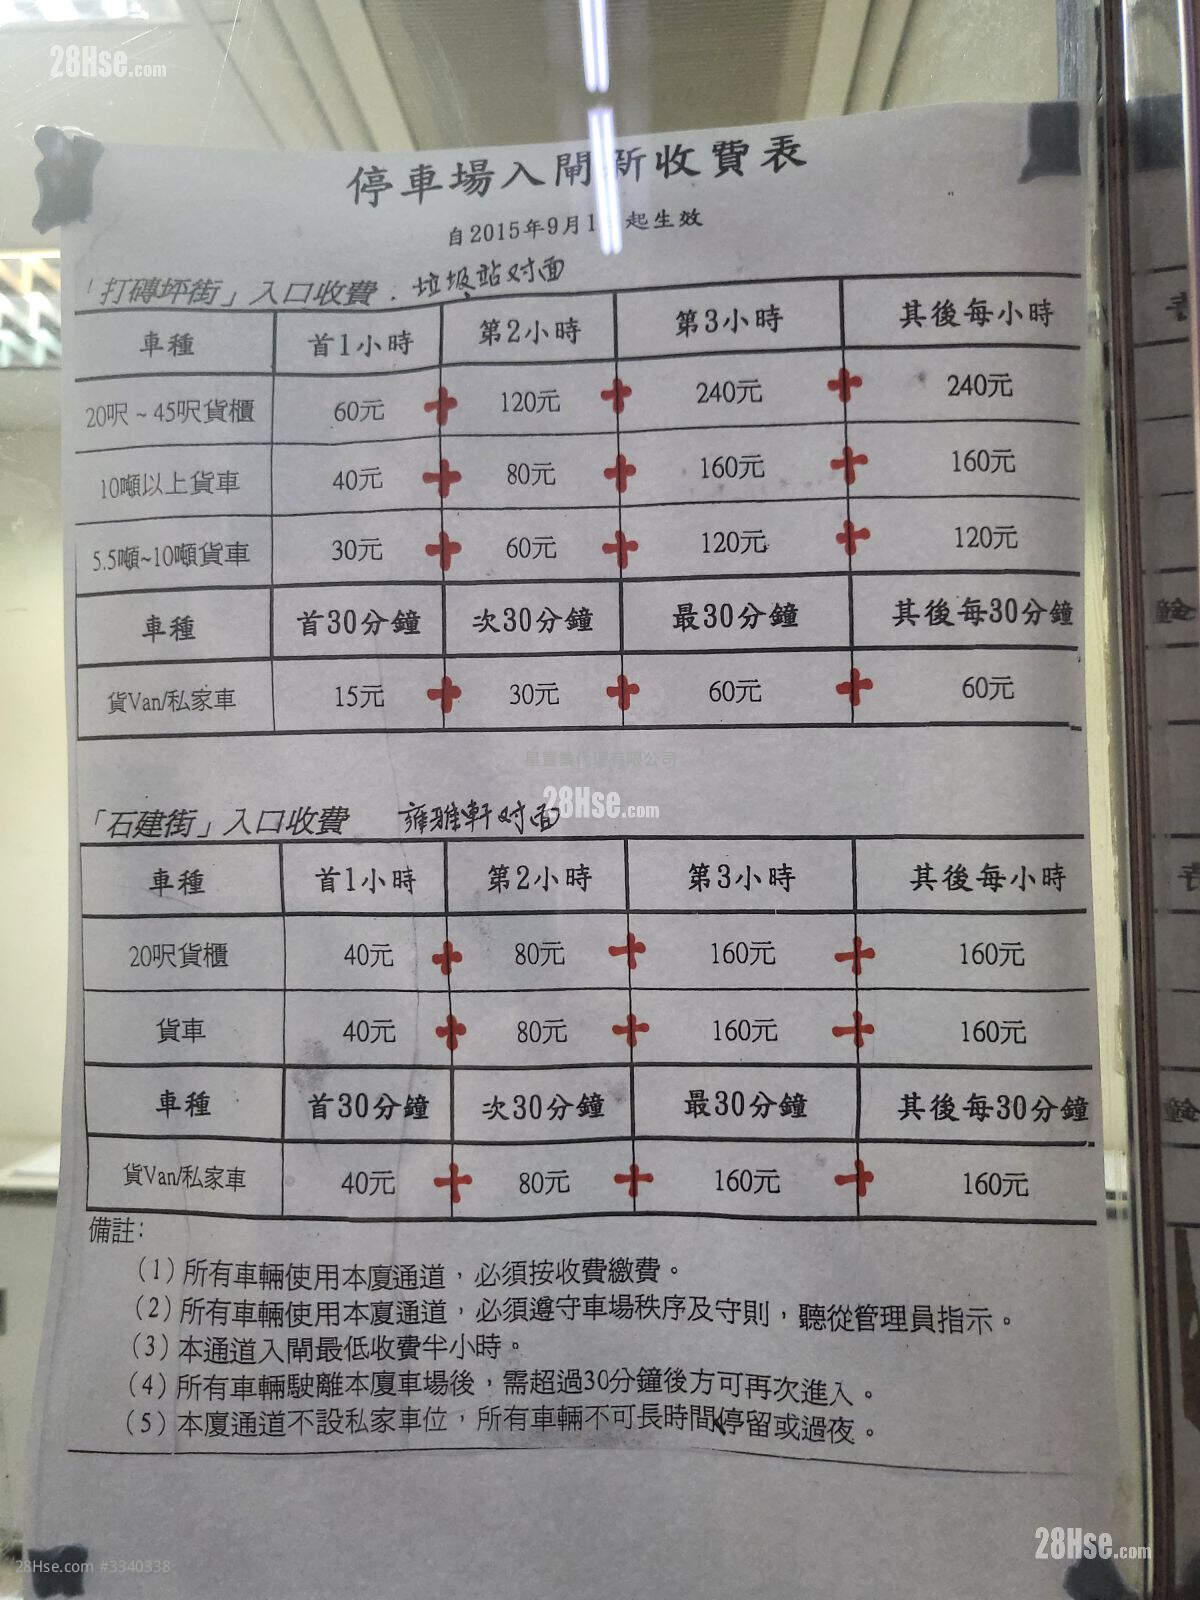 28Hse.com
停車場入閘新收費表
自2015年9月1 起生效
「打磚坪街」入口收費. 垃圾站对面
車種 首1小時 第2小時 第3小時 其後每小時
20呎~45呎貨櫃 60元 + 120元 + 240元 + 240元
10噸以上貨車 40元 + 80元 + 160元 + 160元
5.5噸~10噸貨車 30元 + 60元 + 120元 + 120元
車種 首30分鐘 次30分鐘 最30分鐘 其後每30分鐘
貨Van/私家車 15元 + 30元 + 60元 + 60元
28Hse.com
「石建街」入口收費 雍雅軒对面
車種 首1小時 第2小時 第3小時 其後每小時
20呎貨櫃 40元 + 80元 + 160元 + 160元
貨車 40元 + 80元 + 160元 + 160元
車種 首30分鐘 次30分鐘 最30分鐘 其後每30分鐘
貨Van/私家車 40元 + 80元 + 160元 + 160元
備註:
(1)所有車輛使用本廈通道，必須按收費繳費。
(2)所有車輛使用本廈通道，必須遵守車場秩序及守則，聽從管理員指示。
(3)本通道入閘最低收費半小時。
(4)所有車輛駛離本廈車場後，需超過30分鐘後方可再次進入。
(5)本廈通道不設私家車位，所有車輛不可長時間停留或過夜。
28Hse.com #3340338
28Hse.com